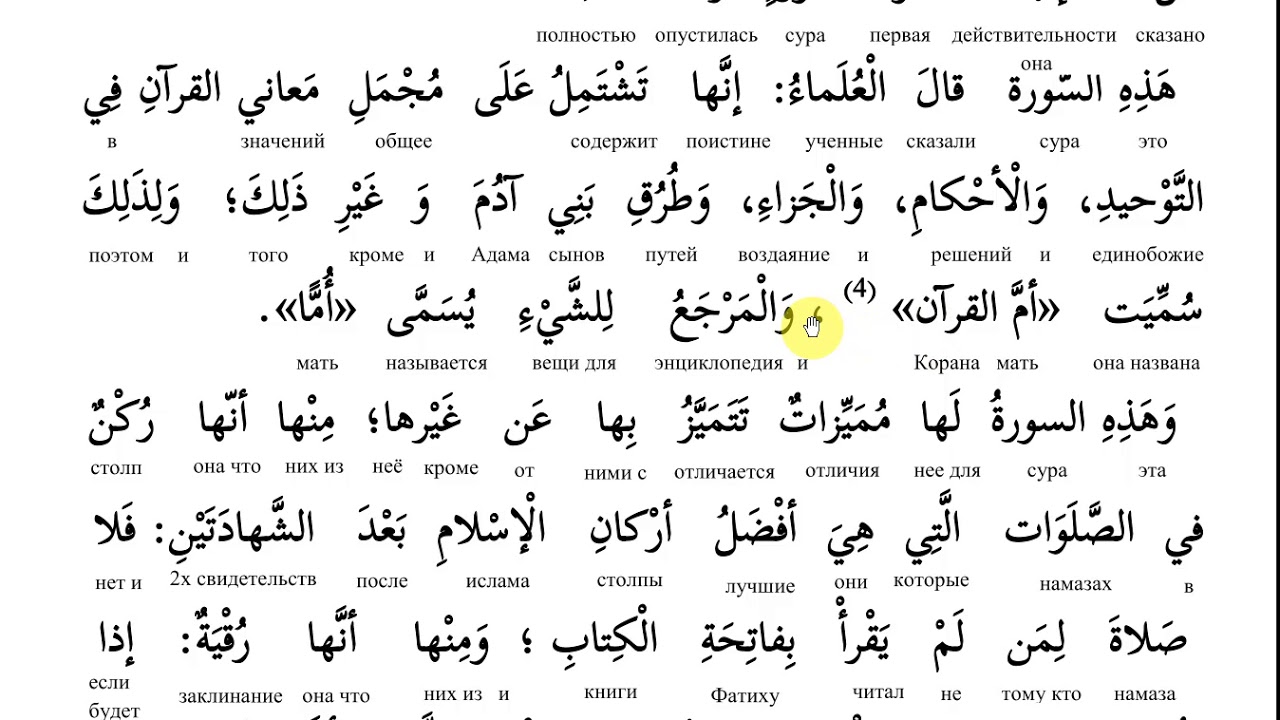 полностью опустилась сура первая действительности сказано
она
هَذِهِ السّورة قالَ الْعُلَماءُ: إنَّها تَشْتَمِلُ عَلَى مُجْمَلِ مَعاني القرآنِ فِي
в значений общее содержит поистине ученные сказали сура это
التَّوْحيدِ، وَالْأحْكامِ، وَالْجَزاءِ، وَطُرُقِ بَنِي آدَمَ وَ غَيْرِ ذَلِكَ؛ وَلِذَلِكَ
поэтом и того кроме и Адама сынов путей воздаяние и решений и единобожие
سُمِّيَت «أمَّ القرآن» (4) ؛ وَالْمَرْجَعُ لِلشَّيْءِ يُسَمَّى «أُمًّا».
мать называется вещи для энциклопедия и Корана мать она названа
وَهَذِهِ السورةُ لَها مُمَيِّزاتٌ تَتَمَيَّزُ بِها عَن غَيْرها؛ مِنْها أنّها رُكْنٌ
столп она что них из неё кроме от ними с отличается отличия нее для сура эта
في الصَّلَوَات الَّتِي هِيَ أفْضَلُ أرْكانِ الْإسْلامِ بَعْدَ الشَّهادَتَيْنِ: فَلا
нет и 2х свидетельств после ислама столпы лучшие они которые намазах в
صَلاةَ لِمَن لَمْ يَقْرأْ بِفاتِحَةِ الْكِتابِ ؛ وَمِنْها أنَّها رُقْيَةٌ: إذا
если будет заклинание она что них из и книги Фатиху читал не тому кто намаза